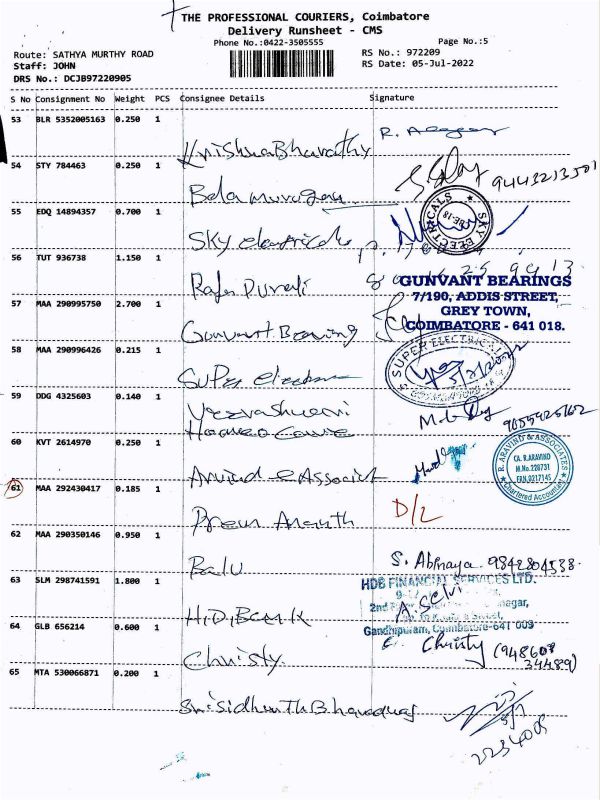 THE PROFESSIONAL COURIERS, Coimbatore
Delivery Runsheet - CMS
Phone No.:0422-3505555
Page No.:5
Route: SATHYA MURTHY ROAD
RS No.: 972209
Staff: JOHN
RS Date: 05-Jul-2022
DRS No.: DCJB97220905
S No Consignment No Weight PCS Consignee Details Signature
53 BLR 5352005163 0.250 1
KrishnaBharathy
54 STY 784463 0.250 1
Bala murugan
9443213501
55 EDQ 14894357 0.700 1
Sky electricals
SKY ELECTRICALS
56 TUT 936738 1.150 1
GUNVANT BEARINGS
7/190, ADDIS STREET,
GREY TOWN,
COIMBATORE - 641 018.
57 MAA 290995750 2.700 1
Gunvant Bearing
58 MAA 290996426 0.215 1
SUPER ELECTRICALS
Super
59 DDG 4325603 0.140 1
60 KVT 2614970 0.250 1
R. ARAVIND & ASSOCIATES
CA. R.ARAVIND
M.No.228731
FRN.021714S
Chartered Accountants
Arvind & Associat
61 MAA 292430417 0.185 1
D/L
Prem Ananth
62 MAA 290350146 0.950 1
Balu
S. Abinaya 9842804538
63 SLM 298741591 1.800 1
HDB FINANCIAL SERVICES LTD.
A. Selvi
Gandhipuram, Coimbatore-641 009
H.D.Bank
64 GLB 656214 0.600 1
Christy
Christy (948608
34489)
65 MTA 530066871 0.200 1
2234005